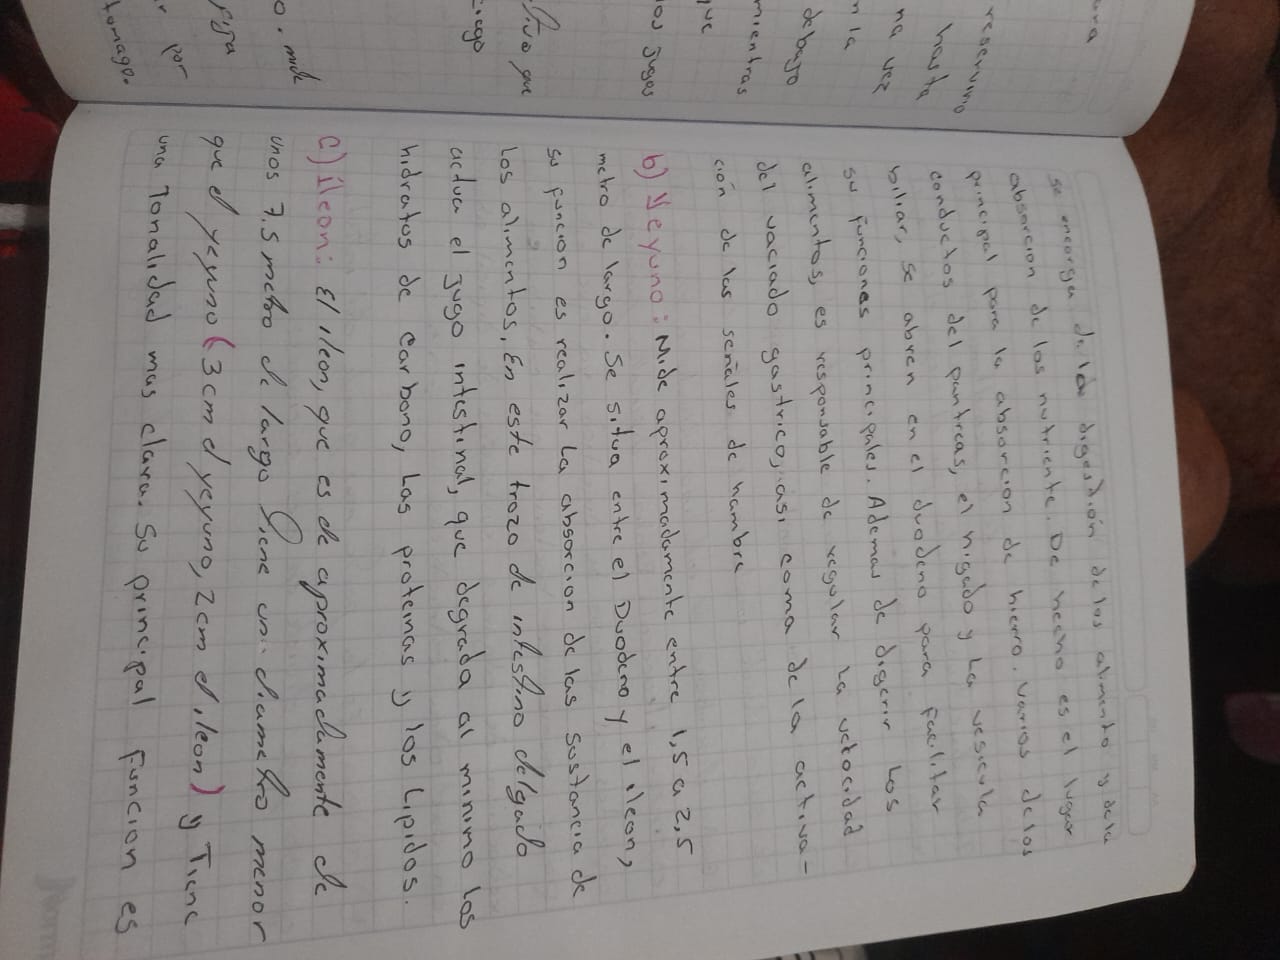 ara
reservimo
hasta
na vez
n la
debajo
mientras
que
os jugos
que
o. mide
por
tomago.
se encarga de la digestión de los alimento y de la
absorcion de los nutriente. De hecho es el lugar
principal para la absorcion de hierro. varios de los
conductos del pantreas, el higado y La vesicula
biliar, se abren en el duodeno para facilitar
su funciones principales. Ademas de digerir Los
alimentos, es responsable de regular La velocidad
del vaciado gastrico, asi coma de la activa-
ción de las señales de hambre
b) Yeyuno: Mide aproximadamente entre 1,5 a 2,5
metro de largo. Se situa entre el Duodeno y el ileon,
su funcion es realizar La absorcion de las sustancia de
Los alimentos, En este trozo de intestino delgado
actua el jugo intestinal, que degrada al minimo Los
hidratos de carbono, Las proteinas y los Lipidos.
c) íleon: El ileon, que es de aproximadamente de
unos 7.5 metro de largo tiene un diametro menor
que el yeyuno (3cm el yeyuno, 2cm el ileon) y Tiene
una Tonalidad mas clara. Su principal funcion es